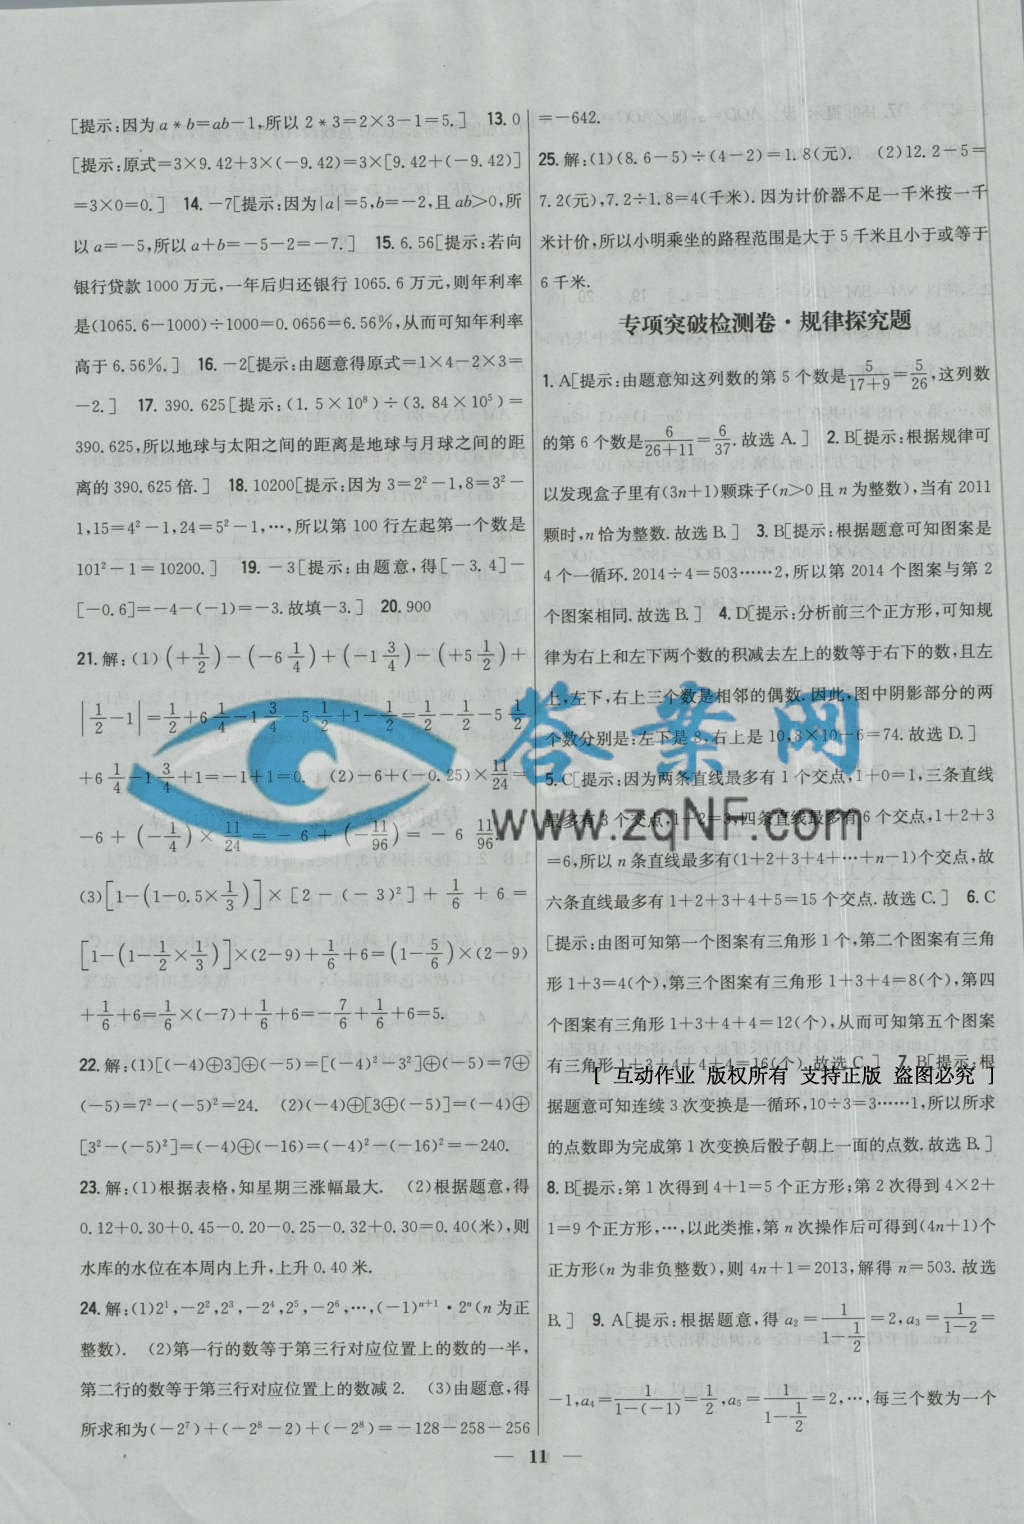 [提示:因为a*b=ab-1,所以2*3=2×3-1=5.] 13.0
[提示:原式=3×9.42+3×(-9.42)=3×[9.42+(-9.42)]
=3×0=0.] 14.-7[提示:因为|a|=5,b=-2,且ab>0,所
以a=-5,所以a+b=-5-2=-7.] 15.6.56[提示:若向
银行贷款1000万元,一年后归还银行1065.6万元,则年利率
是(1065.6-1000)÷1000=0.0656=6.56%,从而可知年利率
高于6.56%.] 16.-2[提示:由题意得原式=1×4-2×3=
-2.] 17.390.625[提示:(1.5×10⁸)÷(3.84×10⁵)=
390.625,所以地球与太阳之间的距离是地球与月球之间的距
离的390.625倍.] 18.10200[提示:因为3=2²-1,8=3²-
1,15=4²-1,24=5²-1,…,所以第100行左起第一个数是
101²-1=10200.] 19.-3[提示:由题意,得[-3.4]-
[-0.6]=-4-(-1)=-3.故填-3.] 20.900
21.解:(1)(+1/2)-(-6 1/4)+(-1 3/4)-(+5 1/2)+
|1/2-1|=1/2+6 1/4-1 3/4-5 1/2+1-1/2=1/2-1/2-5 1/2
+6 1/4-1 3/4+1=-1+1=0. (2)-6+(-0.25)×11/24=
-6+(-1/4)×11/24=-6+(-11/96)=-6 11/96.
(3)[1-(1-0.5×1/3)]×[2-(-3)²]+1/6+6=
[1-(1-1/2×1/3)]×(2-9)+1/6+6=(1-5/6)×(2-9)
+1/6+6=1/6×(-7)+1/6+6=-7/6+1/6+6=5.
22.解:(1)[(-4)⊕3]⊕(-5)=[(-4)²-3²]⊕(-5)=7⊕
(-5)=7²-(-5)²=24. (2)(-4)⊕[3⊕(-5)]=(-4)⊕
[3²-(-5)²]=(-4)⊕(-16)=(-4)²-(-16)²=-240.
23.解:(1)根据表格,知星期三涨幅最大. (2)根据题意,得
0.12+0.30+0.45-0.20-0.25-0.32+0.30=0.40(米),则
水库的水位在本周内上升,上升0.40米.
24.解:(1)2¹,-2²,2³,-2⁴,2⁵,-2⁶,…,(-1)ⁿ⁺¹·2ⁿ(n为正
整数). (2)第一行的数等于第三行对应位置上的数的一半,
第二行的数等于第三行对应位置上的数减2. (3)由题意,得
所求和为(-2⁷)+(-2⁸-2)+(-2⁸)=-128-258-256
=-642.
25.解:(1)(8.6-5)÷(4-2)=1.8(元). (2)12.2-5=
7.2(元),7.2÷1.8=4(千米).因为计价器不足一千米按一千
米计价,所以小明乘坐的路程范围是大于5千米且小于或等于
6千米.
专项突破检测卷·规律探究题
1.A[提示:由题意知这列数的第5个数是5/(17+9)=5/26,这列数
的第6个数是6/(26+11)=6/37.故选A.] 2.B[提示:根据规律可
以发现盒子里有(3n+1)颗珠子(n>0且n为整数),当有2011
颗时,n恰为整数.故选B.] 3.B[提示:根据题意可知图案是
4个一循环.2014÷4=503……2,所以第2014个图案与第2
个图案相同.故选B.] 4.D[提示:分析前三个正方形,可知规
律为右上和左下两个数的积减去左上的数等于右下的数,且左
上,左下,右上三个数是相邻的偶数.因此,图中阴影部分的两
个数分别是:左下是8,右上是10,8×10-6=74.故选D.]
5.C[提示:因为两条直线最多有1个交点,1+0=1,三条直线
最多有3个交点,1+2=3,四条直线最多有6个交点,1+2+3
=6,所以n条直线最多有(1+2+3+4+…+n-1)个交点,故
六条直线最多有1+2+3+4+5=15个交点.故选C.] 6.C
[提示:由图可知第一个图案有三角形1个,第二个图案有三角
形1+3=4(个),第三个图案有三角形1+3+4=8(个),第四
个图案有三角形1+3+4+4=12(个),从而可知第五个图案
有三角形1+3+4+4+4=16(个).故选C.] 7.B[提示:根
[ 互动作业 版权所有 支持正版 盗图必究 ]
据题意可知连续3次变换是一循环,10÷3=3……1,所以所求
的点数即为完成第1次变换后骰子朝上一面的点数.故选B.]
8.B[提示:第1次得到4+1=5个正方形;第2次得到4×2+
1=9个正方形,…,以此类推,第n次操作后可得到(4n+1)个
正方形(n为非负整数),则4n+1=2013,解得n=503.故选
B.] 9.A[提示:根据题意,得a₂=1/(1-1/2)=2,a₃=1/(1-2)=
-1,a₄=1/(1-(-1))=1/2,a₅=1/(1-1/2)=2,…,每三个数为一个
— 11 —
答案网
www.zqNF.com